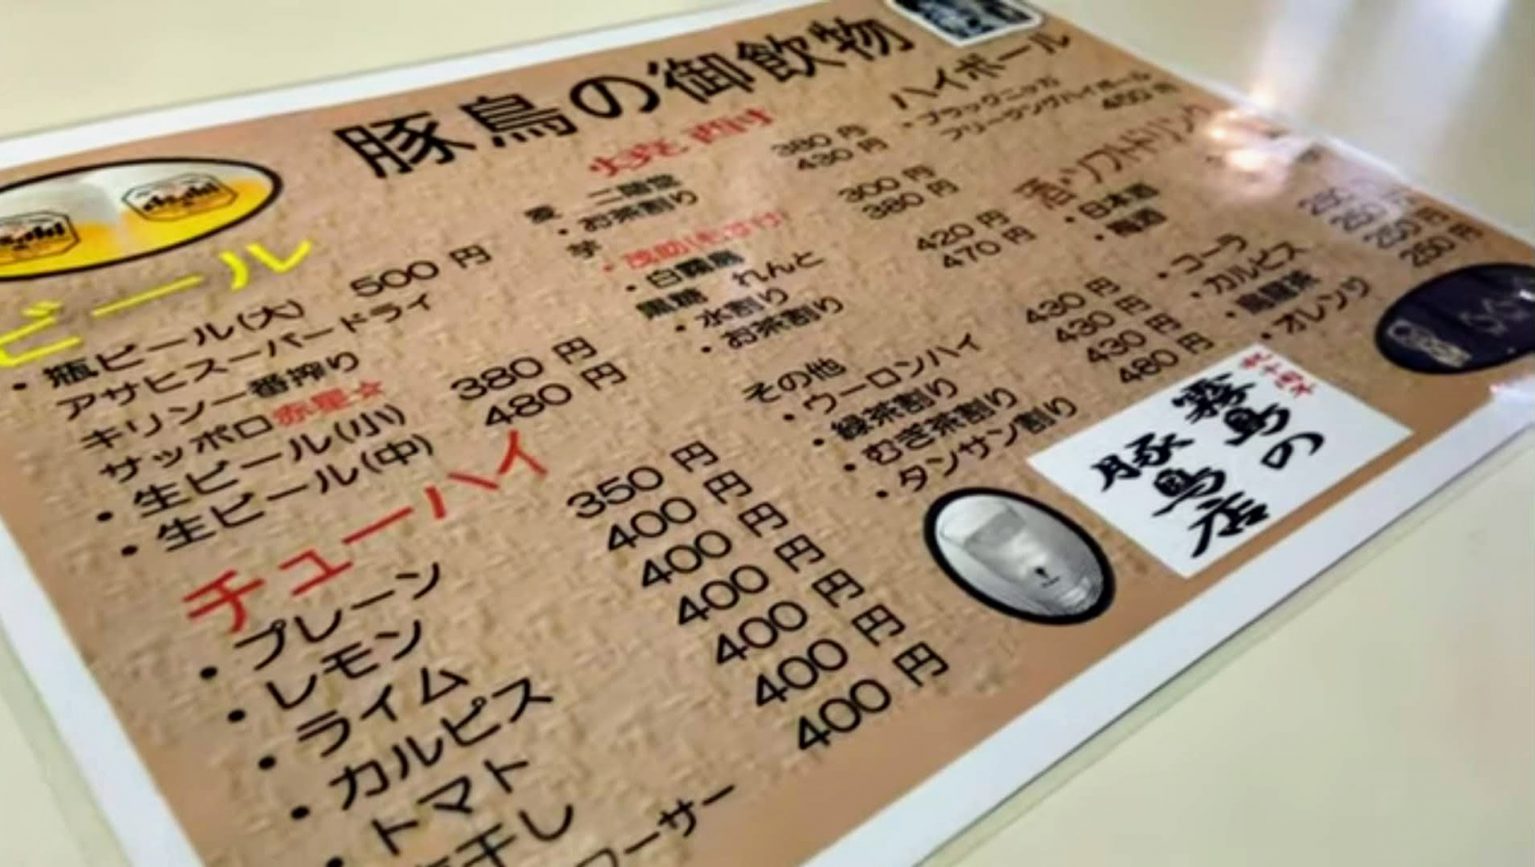 豚鳥の御飲物
Asahi
ビール
・瓶ビール(大) 500 円
アサヒスーパードライ
キリン一番搾り
サッポロ赤星☆
・生ビール(小) 380 円
・生ビール(中) 480 円
チューハイ
・プレーン 350 円
・レモン 400 円
・ライム 400 円
・カルピス 400 円
・トマト 400 円
干し 400 円
ワーサー 400 円
焼酎
麦 二階堂 380 円
・お茶割り 430 円
芋
・茂助(もすけ) 300 円
・白霧島 380 円
黒糖 れんと
・水割り 420 円
・お茶割り 470 円
その他
・ウーロンハイ 430 円
・緑茶割り 430 円
・むぎ茶割り 430 円
・タンサン割り 480 円
ハイボール
・ブラックニッカ
フリージングハイボール
450 円
酒・ソフトドリンク
・日本酒
・梅酒
・コーラ 250
・カルピス 250 円
・烏龍茶 250 円
・オレンジ 250 円
霧島の
豚鳥店